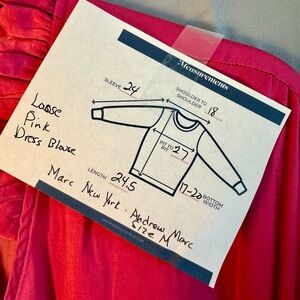 Measurements
SLEEVE 24
SHOULDER TO
SHOULDER 18
Loose
Pink
Dress Blouse
PIT TO
PIT 27
LENGTH 24.5
17-20 BOTTOM
WIDTH
Marc New York - Andrew Marc
Size M